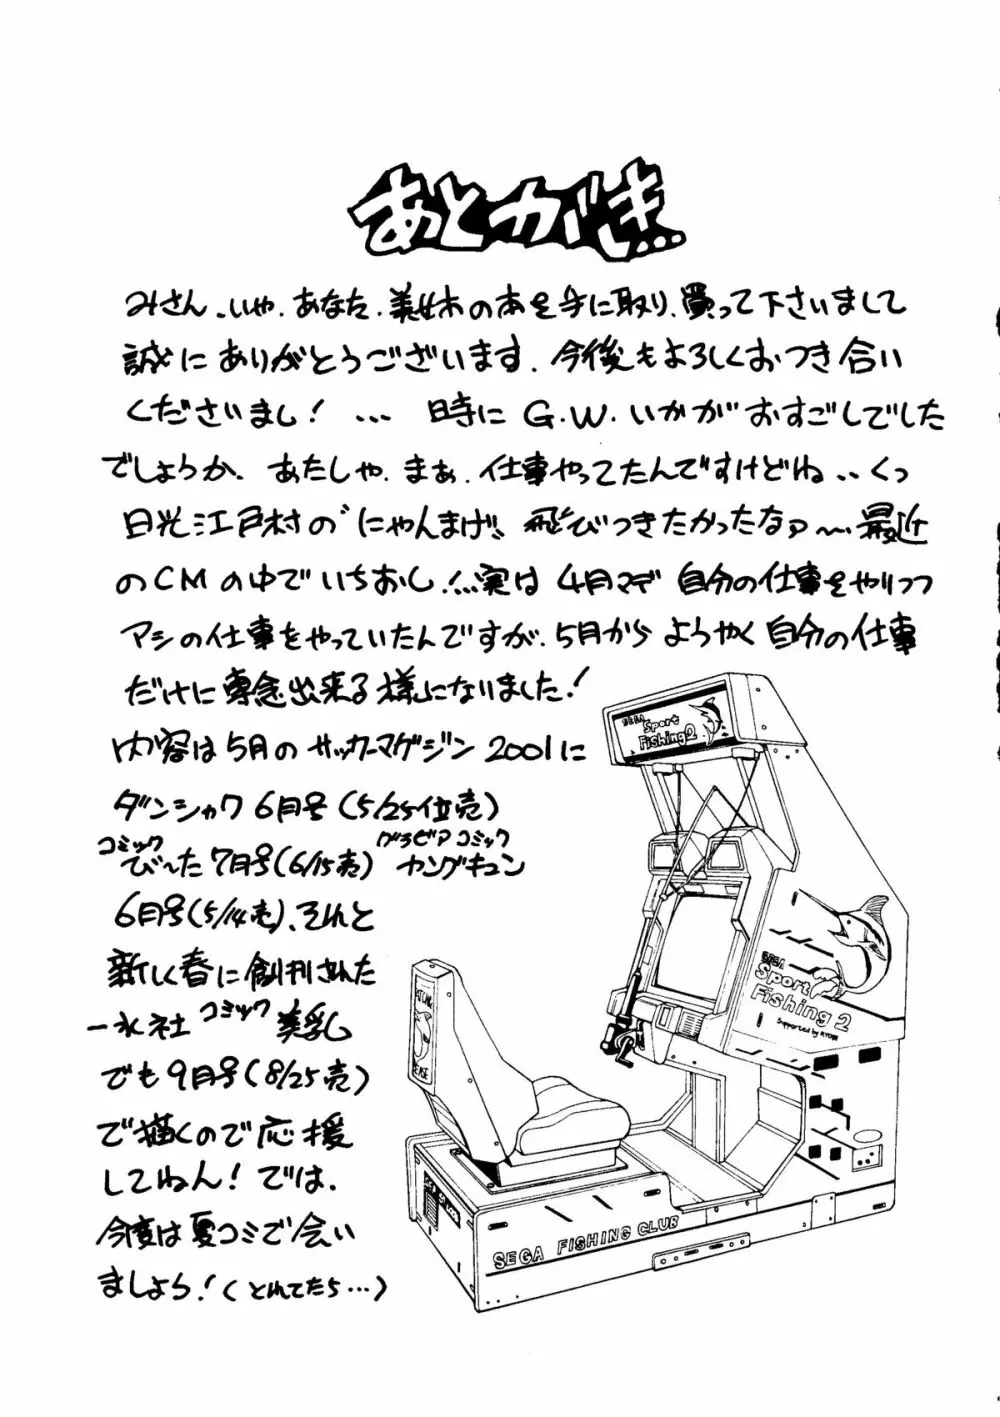 あとがき…
みさん、いや、あなた、美妹の本を手に取り、買って下さいまして
誠にありがとうございます。今後もよろしくおつき合い
くださいまし!… 時にG.W.いかがおすごしでした
でしょうか、あたしゃ、まぁ、仕事やってたんですけどね、、くっ
日光江戸村の"にゃんまげ"、飛びつきたかったなァ〜、最近
のCMの中でいちおし!…実は4月マデ自分の仕事をやりつつ
アシの仕事をやっていたんですが、5月からようやく自分の仕事
だけに専念出来る様になりました!
内容は5月のサッカーマガジン2001に
ダンシャク6月号(5/25位売)
コミック
びーた7月号(6/15売)
ぐらビアコミック
ヤングキュン
6月号(5/14売)、それと
新しく春に創刊された
一水社コミック美乳
でも9月号(8/25売)
で描くので応援
してねん!では、
今度は夏コミで会い
ましょう!(とれてたら…)
SEGA
Sport
Fishing 2
SEGA
Sport
Fishing 2
Supported by RYOBI
SEGA FISHING CLUB